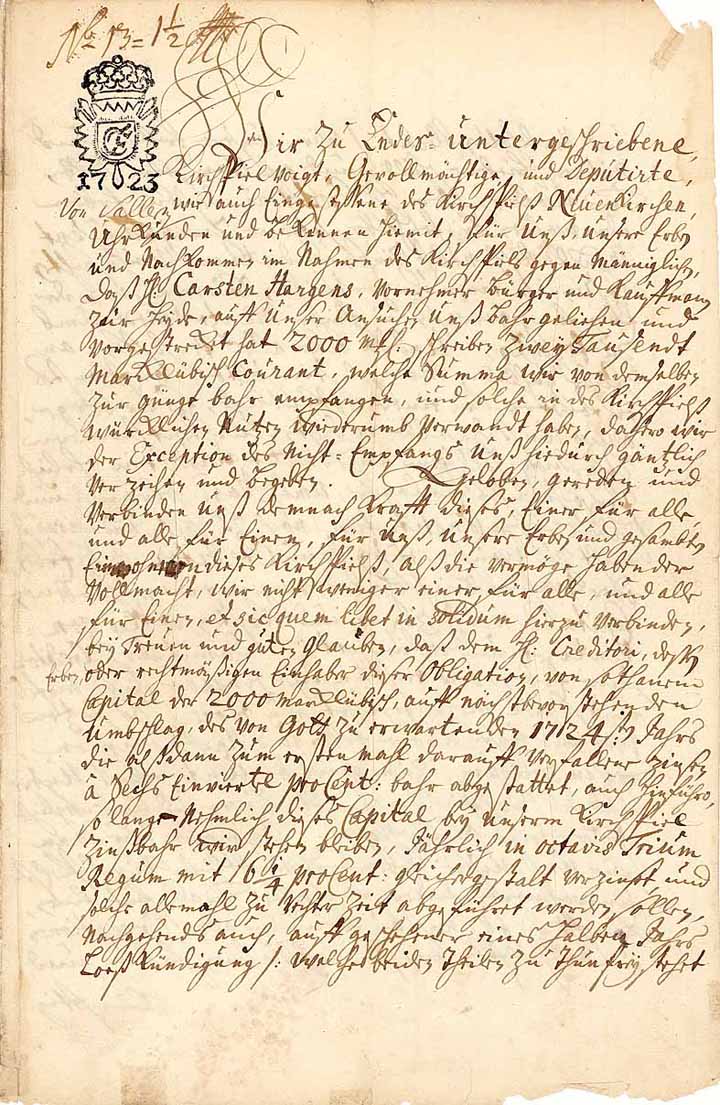 No 13 = 1 1/2
1723
Wir Zu Endes untergeschriebene,
Kirchspielvoigt, Gevollmächtige und Deputirte,
Von Sallen wie auch Eingesessene des Kirchspielß Neuenkirchen,
Uhrkunden und bekennen hiemit, für Unß, Unsere Erben
und Nachkommen im Nahmen des Kirchspielß gegen Männiglich,
Daß H. Carsten Hargens, Vornehmer Bürger und Kauffmann
Zur Heyde, auff Unser Ansuchen Unß bahr geliehen und
Vorgestrecket hat 2000 Mk. schreiben Zwey Tausendt
Marcklübisch Courant, welche Summa wir von demselben
Zur gnüge bahr empfangen, und solche in des Kirchspielß
Würcklichen Nutzen wiederumb verwandt haben, dahero wir
der Exception des Nicht=Empfangs Unß hiedurch gäntzlich
Verzeihen und begeben. Geloben, gereden und
Verbinden Unß demnach Krafft dieses, Einer für alle
und alle für Einen, für Unß, Unsere Erben und gesambten
Einwohnern dieses Kirchspielß, alß die vermöge habender
Vollmacht, wir nicht weniger einer für alle, und alle
für Einen, et sic quem libet in solidum hierzu Verbinden,
bey Treuen und guten Glauben, daß dem H: Creditori, deßen
Erben, oder rechtmäßigen Einhaber dieser Obligation, von sothanem
Capital der 2000 Marcklübisch, auff nächstbevorstehenden
Umbschlag, des von Gott zu erwartenden 1724sten Jahrs
die alßdann zum ersten mahl darauff verfallene Zinsen
à Sechs Einviertel proCent: bahr abgestattet, auch hinführo,
so lange Nehmlich dieses Capital bey Unserm Kirchspiel
Zinßbahr stehen bleiben, Jährlich in octavis Trium
Regum mit 6 1/4 proCent: gleichergestalt verzinset, und
solche allemahl zu rechter Zeit abgeführet werden sollen,
Nachgehends auch, auff geschehener eines halben Jahrs
Loeßkündigung /: welche beiden Theilen zu thun frey stehet